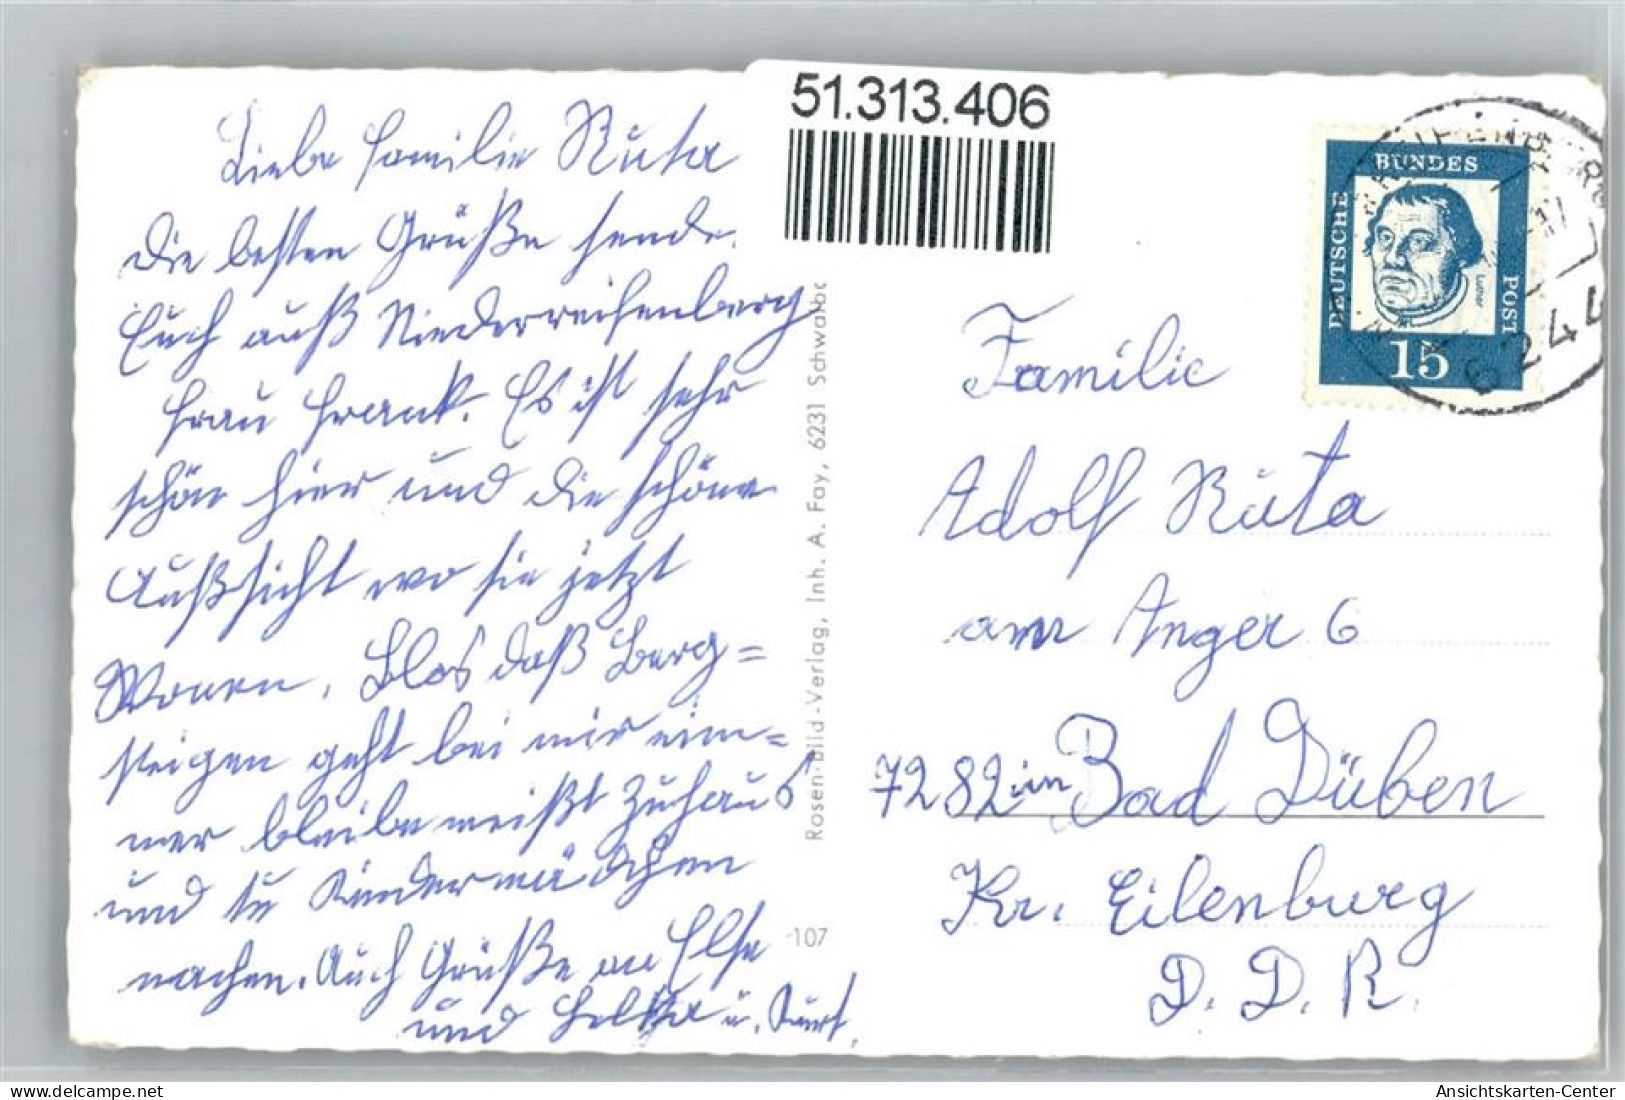 51.313.406
Liebe Familie Ruta
die besten Grüße sende
Euch auß Niederreifenberg
Frau Frank. Es ist sehr
schön hier und die schöne
Außsicht wo sie jetzt
Wonen. Blos daß Berg=
steigen geht bei mir nim=
mer bleibe meißt Zuhaus
und tu Kindermädchen
machen. Auch Grüße an Else
und u. Kurt.
Rosen-bild-Verlag, Inh. A. Fay, 6231 Schwalbc
107
DEUTSCHE
BUNDES
POST
Luther
15
6244
Familie
Adolf Ruta
am Anger 6
7282 im Bad Düben
Kr. Eilenburg
D. D. R.
www.delcampe.net
Ansichtskarten-Center